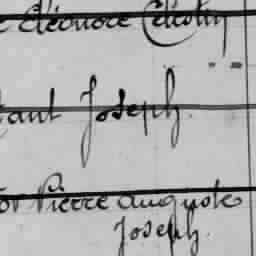 Eléonore Célestin
" "
Joseph.
Pierre Auguste
Joseph.